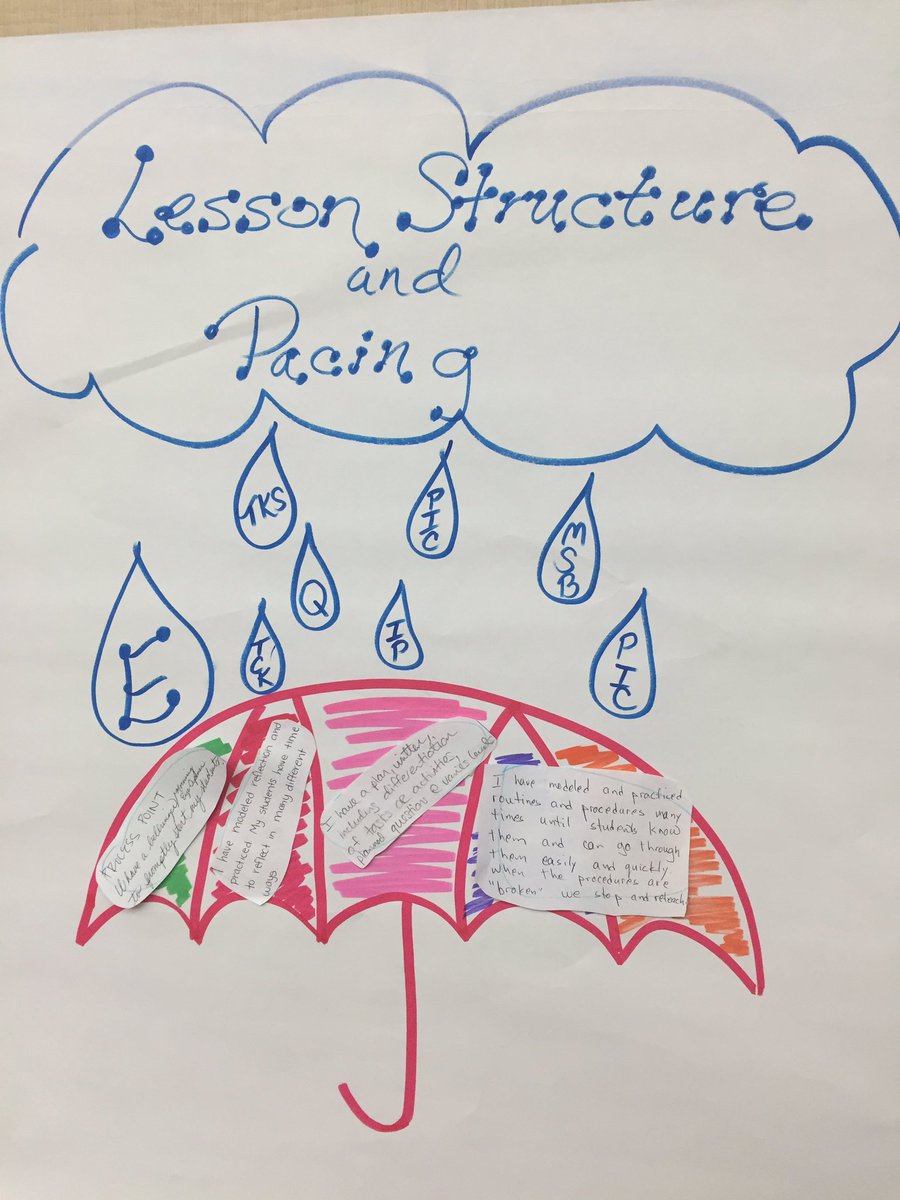 Lesson Structure
and
Pacing
TKS
PIC
MSB
Q
E
TCK
IP
PIC
ACCESS POINT
have a
to promptly start my students
I have modeled reflection and
practiced. My students have time
to reflect in many different
ways
I have a plan, written,
including differentiation
of tasks or activities,
planned question @ varies levels
I have modeled and practiced
routines and procedures many
times until students know
them and can go through
them easily and quickly
When the procedures are
"broken" we stop and reteach